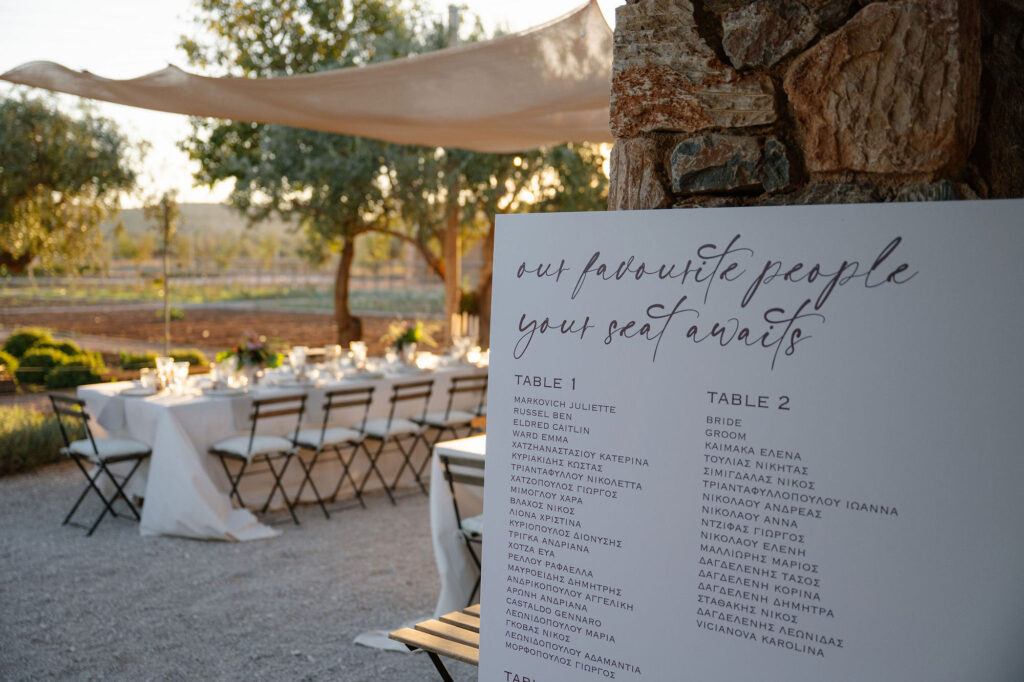 our favourite people
your seat awaits
TABLE 1
MARKOVICH JULIETTE
RUSSEL BEN
ELDRED CAITLIN
WARD EMMA
ΧΑΤΖΗΑΝΑΣΤΑΣΙΟΥ ΚΑΤΕΡΙΝΑ
ΚΥΡΙΑΚΙΔΗΣ ΚΩΣΤΑΣ
ΤΡΙΑΝΤΑΦΥΛΛΟΥ ΝΙΚΟΛΕΤΤΑ
ΧΑΤΖΟΠΟΥΛΟΣ ΓΙΩΡΓΟΣ
ΜΙΜΟΓΛΟΥ ΧΑΡΑ
ΒΛΑΧΟΣ ΝΙΚΟΣ
ΛΙΟΝΑ ΧΡΙΣΤΙΝΑ
ΚΥΡΙΟΠΟΥΛΟΣ ΔΙΟΝΥΣΗΣ
ΤΡΙΓΚΑ ΑΝΔΡΙΑΝΑ
ΧΟΤΖΑ ΕΥΑ
ΡΕΛΛΟΥ ΡΑΦΑΕΛΛΑ
ΜΑΥΡΟΕΙΔΗΣ ΔΗΜΗΤΡΗΣ
ΑΝΔΡΙΚΟΠΟΥΛΟΥ ΑΓΓΕΛΙΚΗ
ΑΡΩΝΗ ΑΝΔΡΙΑΝΑ
CASTALDO GENNARO
ΛΕΩΝΙΔΟΠΟΥΛΟΥ ΜΑΡΙΑ
ΓΚΟΒΑΣ ΝΙΚΟΣ
ΛΕΩΝΙΔΟΠΟΥΛΟΥ ΑΔΑΜΑΝΤΙΑ
ΜΟΡΦΟΠΟΥΛΟΣ ΓΙΩΡΓΟΣ
TABLE 2
BRIDE
GROOM
ΚΑΙΜΑΚΑ ΕΛΕΝΑ
ΤΟΥΛΙΑΣ ΝΙΚΗΤΑΣ
ΣΙΜΙΓΔΑΛΑΣ ΝΙΚΟΣ
ΤΡΙΑΝΤΑΦΥΛΛΟΠΟΥΛΟΥ ΙΩΑΝΝΑ
ΝΙΚΟΛΑΟΥ ΑΝΔΡΕΑΣ
ΝΙΚΟΛΑΟΥ ΑΝΝΑ
ΝΤΖΙΦΑΣ ΓΙΩΡΓΟΣ
ΝΙΚΟΛΑΟΥ ΕΛΕΝΗ
ΜΑΛΛΙΩΡΗΣ ΜΑΡΙΟΣ
ΔΑΓΔΕΛΕΝΗΣ ΤΑΣΟΣ
ΔΑΓΔΕΛΕΝΗ ΚΟΡΙΝΑ
ΔΑΓΔΕΛΕΝΗ ΔΗΜΗΤΡΑ
ΣΤΑΘΑΚΗΣ ΝΙΚΟΣ
ΔΑΓΔΕΛΕΝΗΣ ΛΕΩΝΙΔΑΣ
VICIANOVA KAROLINA